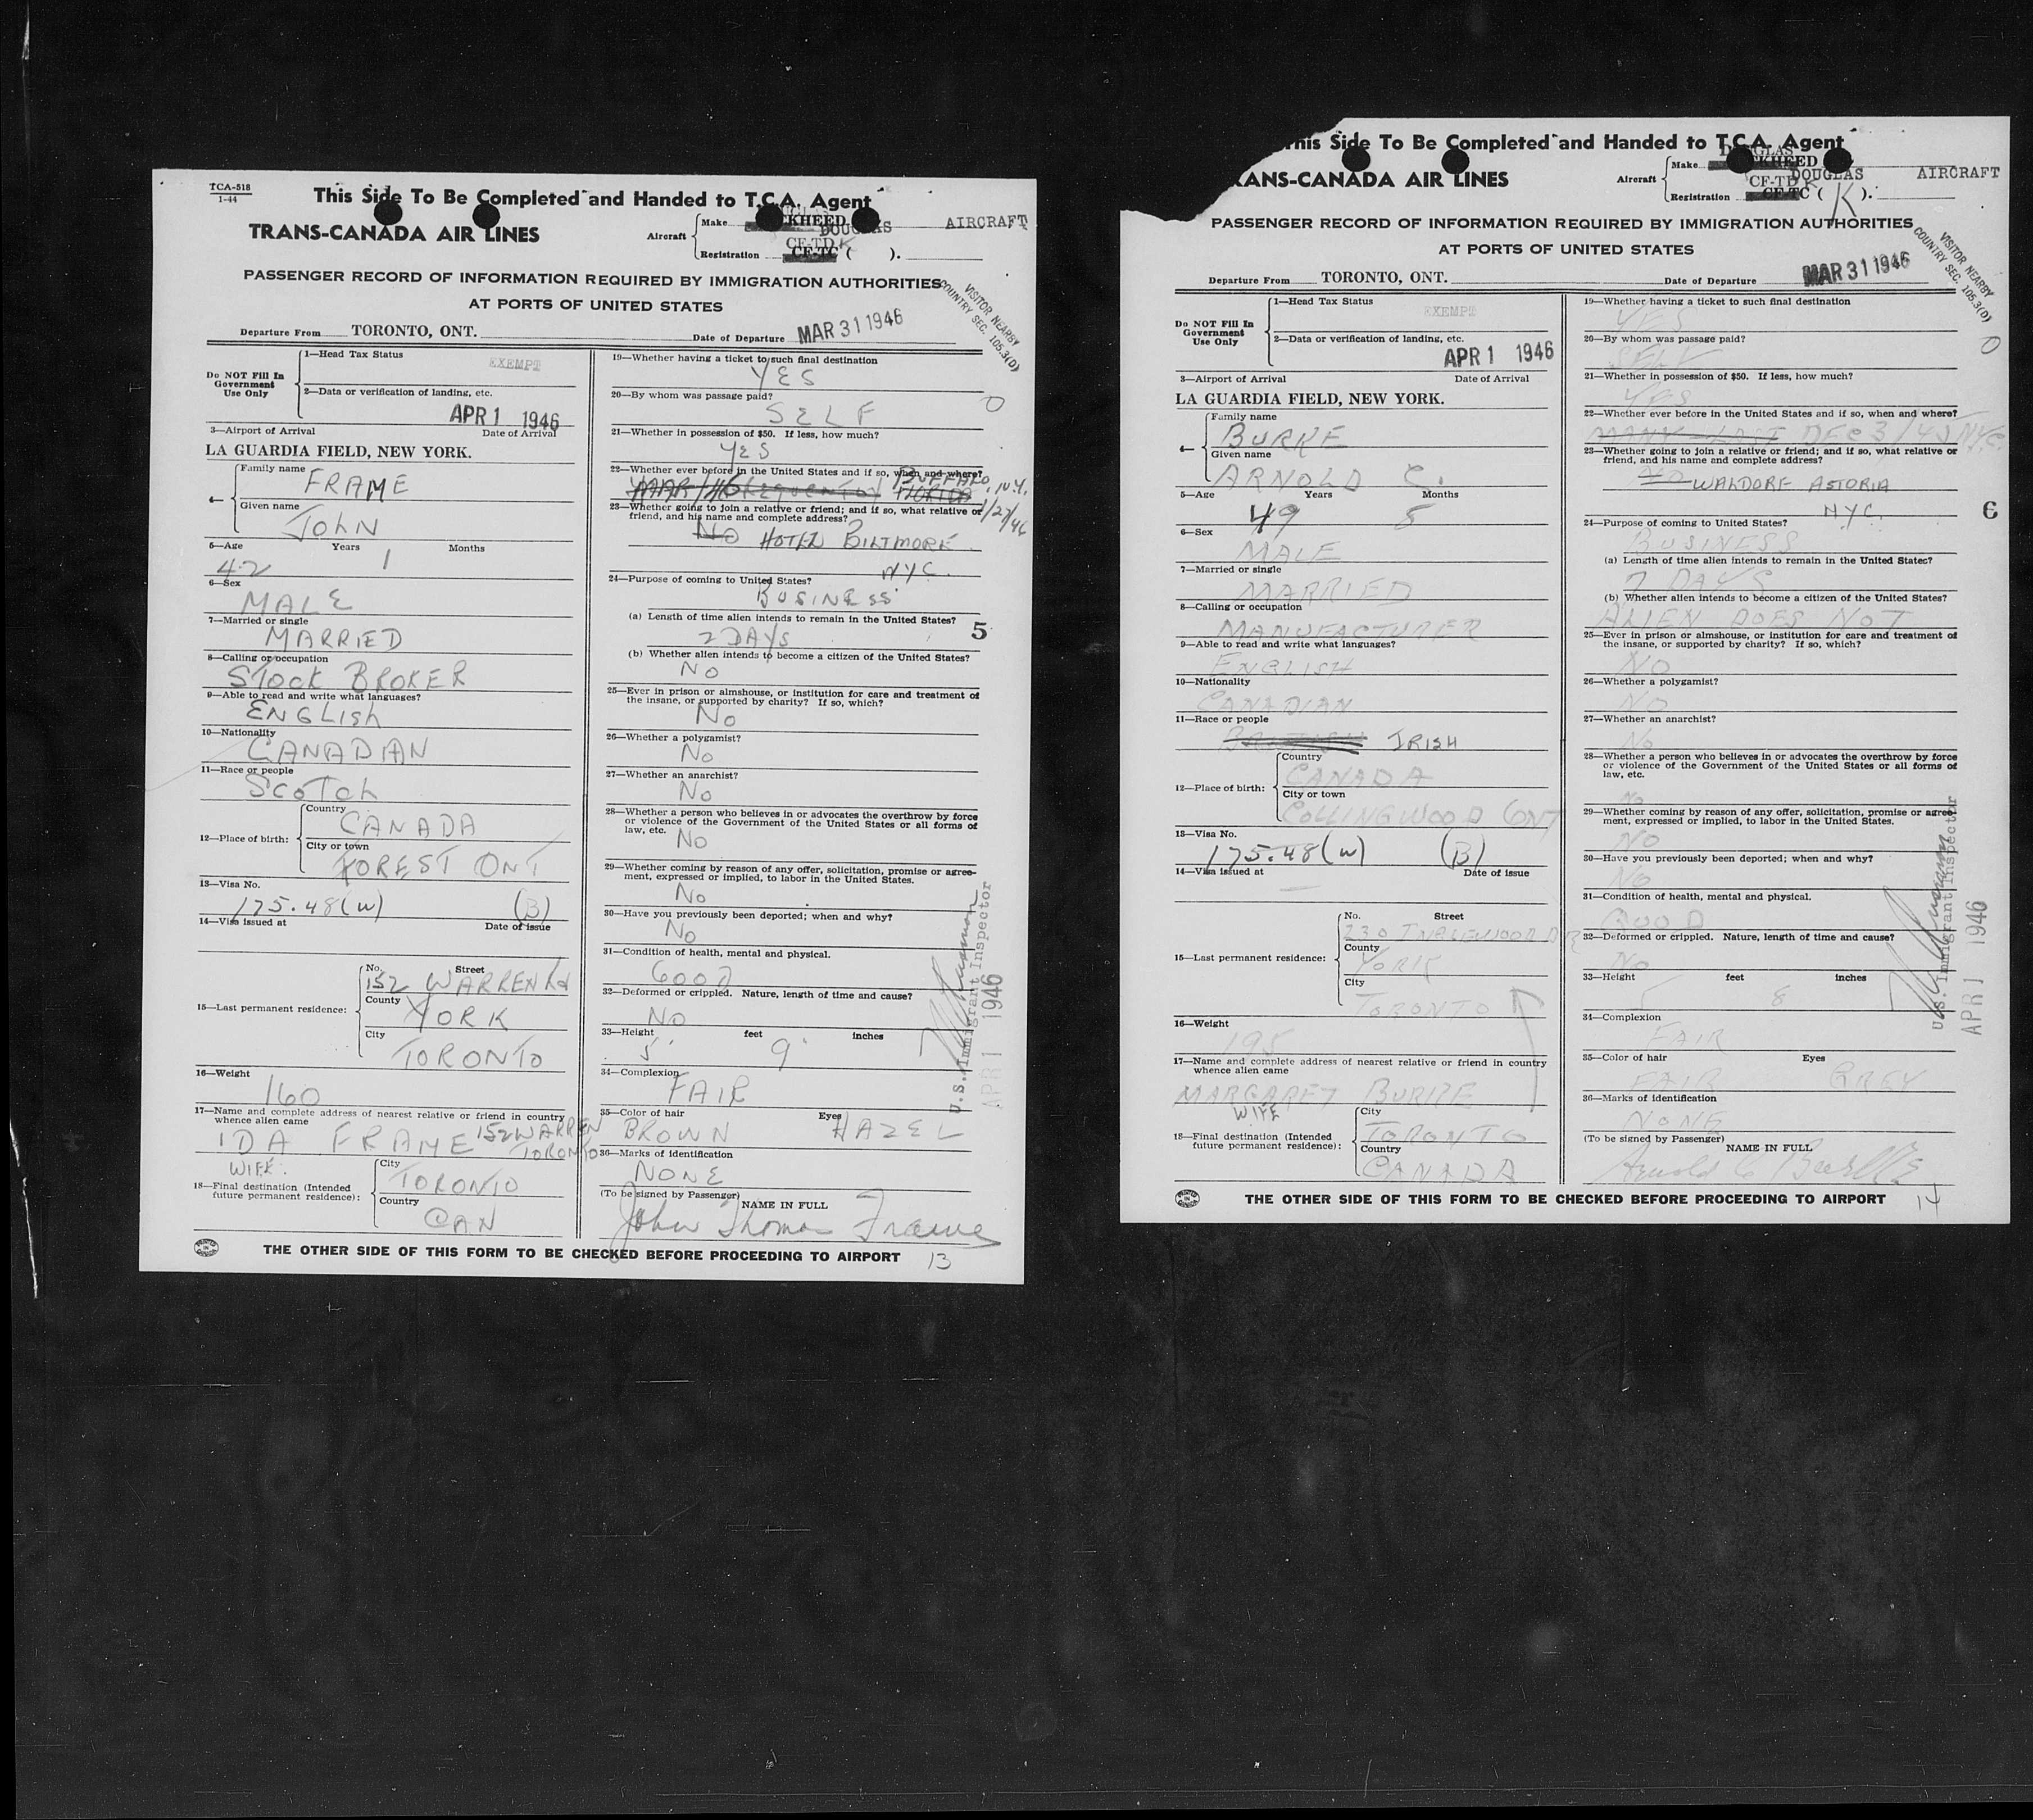 TCA-518
1-44
This Side To Be Completed and Handed to T.C.A. Agent
TRANS-CANADA AIR LINES
Aircraft
Make
KHEED
DOUGLAS
AIRCRAFT
CF-TD K
Registration CF-TC ( ).
PASSENGER RECORD OF INFORMATION REQUIRED BY IMMIGRATION AUTHORITIES
AT PORTS OF UNITED STATES
VISITOR NEARBY
COUNTRY SEC. 105.3(D)
Departure From TORONTO, ONT. Date of Departure MAR 31 1946
Do NOT Fill In
Government
Use Only
1—Head Tax Status
EXEMPT
2—Data or verification of landing, etc.
APR 1 1946
3—Airport of Arrival Date of Arrival
LA GUARDIA FIELD, NEW YORK.
Family name
FRAME
Given name
JOHN
5—Age Years Months
42 1
6—Sex
MALE
7—Married or single
MARRIED
8—Calling or occupation
STOCK BROKER
9—Able to read and write what languages?
ENGLISH
10—Nationality
CANADIAN
11—Race or people
SCOTCH
12—Place of birth:
Country
CANADA
City or town
FOREST ONT
13—Visa No.
175.48(W) (B)
14—Visa issued at Date of issue
15—Last permanent residence:
No. Street
152 WARREN Rd
County
YORK
City
TORONTO
16—Weight
160
17—Name and complete address of nearest relative or friend in country
whence alien came
IDA FRAME 152 WARREN
TORONTO
WIFE
18—Final destination (Intended
future permanent residence):
City
TORONTO
Country
CAN
19—Whether having a ticket to such final destination
YES
20—By whom was passage paid?
SELF
21—Whether in possession of $50. If less, how much?
YES
22—Whether ever before in the United States and if so, when and where?
BUFFALO, N.Y.
MAR/46 FLORIDA
1/27/46
23—Whether going to join a relative or friend; and if so, what relative or
friend, and his name and complete address?
NO HOTEL BILTMORE
NYC.
24—Purpose of coming to United States?
BUSINESS
(a) Length of time alien intends to remain in the United States?
2 DAYS
5
(b) Whether alien intends to become a citizen of the United States?
NO
25—Ever in prison or almshouse, or institution for care and treatment of
the insane, or supported by charity? If so, which?
NO
26—Whether a polygamist?
NO
27—Whether an anarchist?
NO
28—Whether a person who believes in or advocates the overthrow by force
or violence of the Government of the United States or all forms of
law, etc.
NO
29—Whether coming by reason of any offer, solicitation, promise or agree-
ment, expressed or implied, to labor in the United States.
NO
30—Have you previously been deported; when and why?
NO
31—Condition of health, mental and physical.
GOOD
32—Deformed or crippled. Nature, length of time and cause?
NO
33—Height feet inches
5' 9"
34—Complexion
FAIR
35—Color of hair Eyes
BROWN HAZEL
36—Marks of identification
NONE
(To be signed by Passenger) NAME IN FULL
John Thomas Frame
U.S. Immigrant Inspector
APR 1 1946
THE OTHER SIDE OF THIS FORM TO BE CHECKED BEFORE PROCEEDING TO AIRPORT
13
This Side To Be Completed and Handed to T.C.A. Agent
RANS-CANADA AIR LINES
Aircraft
Make
KHEED
DOUGLAS
AIRCRAFT
CF-TD
Registration CF-TC ( K ).
PASSENGER RECORD OF INFORMATION REQUIRED BY IMMIGRATION AUTHORITIES
AT PORTS OF UNITED STATES
VISITOR NEARBY
COUNTRY SEC. 105.3(D)
Departure From TORONTO, ONT. Date of Departure MAR 31 1946
Do NOT Fill In
Government
Use Only
1—Head Tax Status
EXEMPT
2—Data or verification of landing, etc.
APR 1 1946
3—Airport of Arrival Date of Arrival
LA GUARDIA FIELD, NEW YORK.
Family name
BURKE
Given name
ARNOLD C.
5—Age Years Months
49 5
6—Sex
MALE
7—Married or single
MARRIED
8—Calling or occupation
MANUFACTURER
9—Able to read and write what languages?
ENGLISH
10—Nationality
CANADIAN
11—Race or people
IRISH
12—Place of birth:
Country
CANADA
City or town
COLLINGWOOD ONT
13—Visa No.
175.48(W) (B)
14—Visa issued at Date of issue
15—Last permanent residence:
No. Street
230 INGLEWOOD DR
County
YORK
City
TORONTO
16—Weight
195
17—Name and complete address of nearest relative or friend in country
whence alien came
MARGARET BURKE
WIFE
18—Final destination (Intended
future permanent residence):
City
TORONTO
Country
CANADA
19—Whether having a ticket to such final destination
YES
20—By whom was passage paid?
SELF
21—Whether in possession of $50. If less, how much?
YES
22—Whether ever before in the United States and if so, when and where?
MANY LAST DEC 3/45 NYC
23—Whether going to join a relative or friend; and if so, what relative or
friend, and his name and complete address?
NO WALDORF ASTORIA
NYC.
6
24—Purpose of coming to United States?
BUSINESS
(a) Length of time alien intends to remain in the United States?
7 DAYS
(b) Whether alien intends to become a citizen of the United States?
ALIEN DOES NOT
25—Ever in prison or almshouse, or institution for care and treatment of
the insane, or supported by charity? If so, which?
NO
26—Whether a polygamist?
NO
27—Whether an anarchist?
NO
28—Whether a person who believes in or advocates the overthrow by force
or violence of the Government of the United States or all forms of
law, etc.
NO
29—Whether coming by reason of any offer, solicitation, promise or agree-
ment, expressed or implied, to labor in the United States.
NO
30—Have you previously been deported; when and why?
NO
31—Condition of health, mental and physical.
GOOD
32—Deformed or crippled. Nature, length of time and cause?
NO
33—Height feet inches
5 8
34—Complexion
FAIR
35—Color of hair Eyes
FAIR GREY
36—Marks of identification
NONE
(To be signed by Passenger) NAME IN FULL
Arnold C Burke
U.S. Immigrant Inspector
APR 1 1946
THE OTHER SIDE OF THIS FORM TO BE CHECKED BEFORE PROCEEDING TO AIRPORT
14